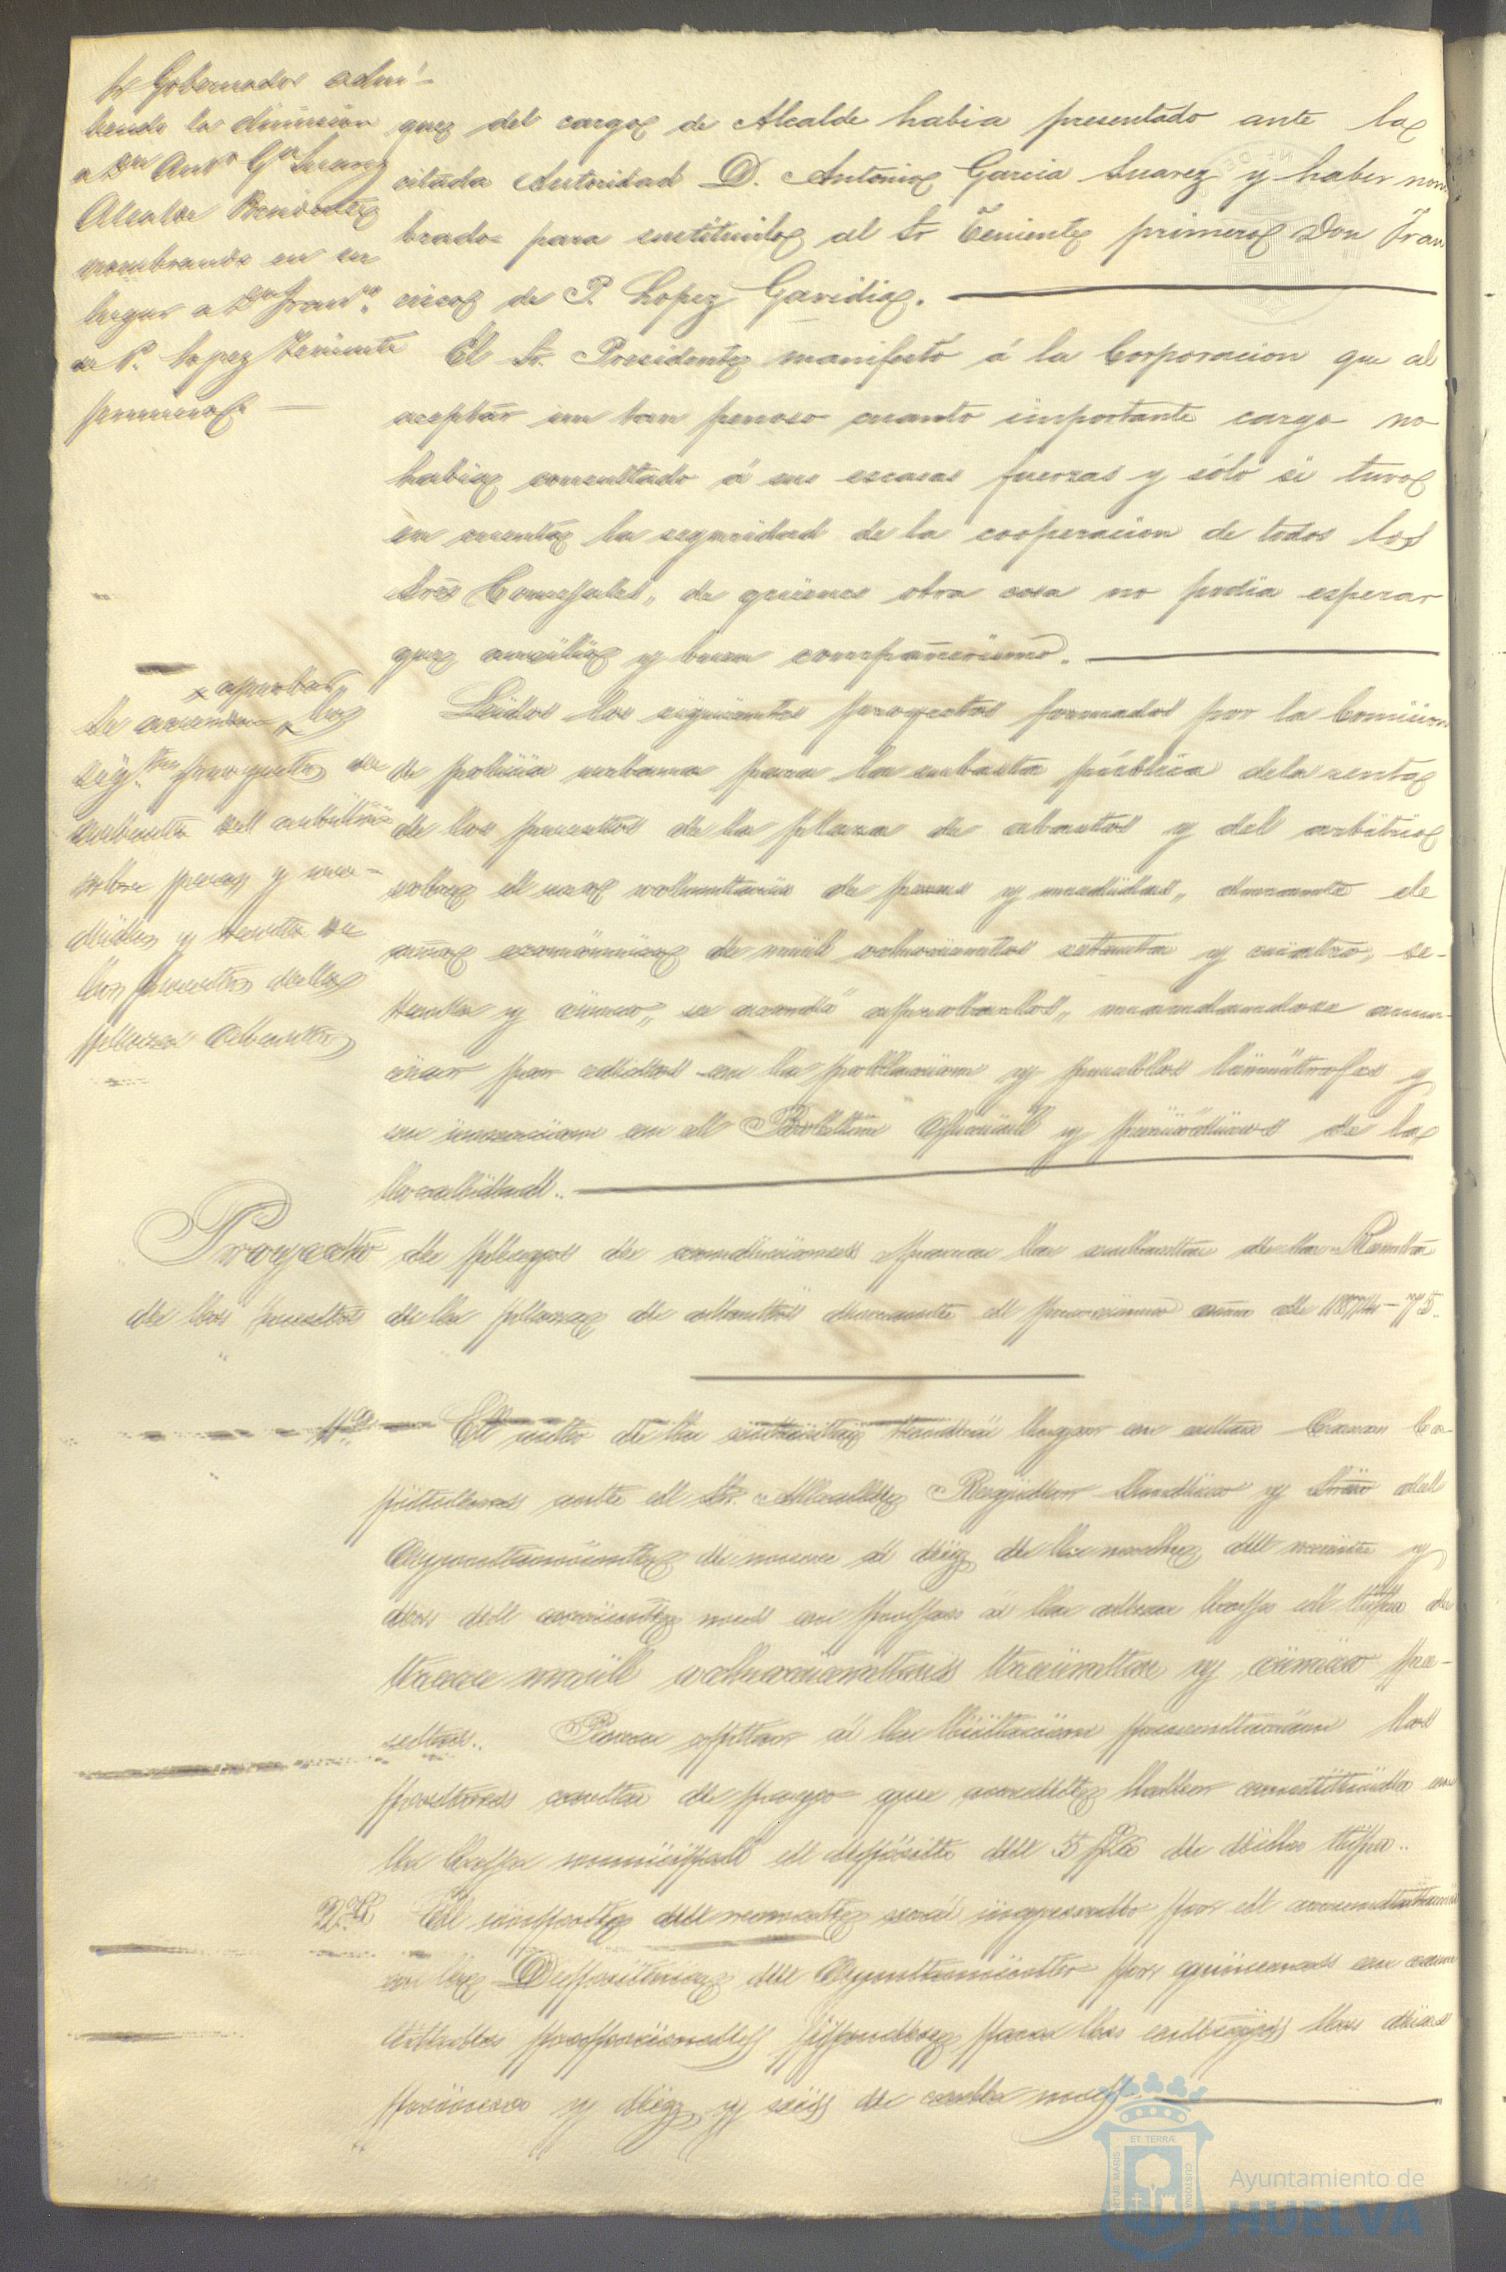 Sr Gobernador admi-
tiendo la dimision
a Dn Antº Gª Suarez
Alcalde Presidente
nombrando en su
lugar a Dn Franco
de P. Lopez Teniente
primero. —
que del cargo de Alcalde habia presentado ante la
citada Autoridad D. Antonio Garcia Suarez y haber nom-
brado para sustituirlo al Sr Teniente primero Don Fran
cisco de P. Lopez Gavidia. —
El Sr. Presidente manifestó á la Corporacion que al
aceptar un tan penoso cuanto importante cargo no
habia consultado á sus escasas fuerzas y sólo si tuvo
en cuenta la seguridad de la cooperacion de todos los
Sres Concejales, de quienes otra cosa no podia esperar
que auxilio y buen compañerismo. —
aprobar
Se acuerda los
sigtes proyectos de
subasta del arbitrio
sobre pesas y me-
didas y renta de
los puestos de la
plaza Abastos
Leidos los siguientes proyectos formados por la Comision
de policia urbana para la subasta pública de la renta
de los puestos de la plaza de abastos y del arbitrio
sobre el uso voluntario de pesas y medidas, durante el
año económico de mil ochocientos setenta y cuatro, se-
tenta y cinco, se acordó aprobarlos, mandandose anun-
ciar por edictos en la poblacion y pueblos limitrofes y
su insercion en el Boletin Oficial y periódicos de la
localidad. —
Proyecto de pliego de condiciones para la subasta de la Renta
de los puestos de la plaza de abastos durante el proximo año de 1874-75.
1ª — El acto de la subasta tendrá lugar en estas Casas Ca-
pitulares ante el Sr. Alcalde, Regidor Sindico y Srio del
Ayuntamiento de nueve á diez de la noche del veinte y
dos del corriente mes en pujas á la alza bajo el tipo de
trece mil ochocientas treinta y cinco pe-
setas. Para optar á la licitacion presentarán los
postores carta de pago que acredite haber constituido en
la Caja municipal el depósito del 5 p% de dicho tipo.
2ª El importe del remate será ingresado por el arrendatario
en la Depositaria del Ayuntamiento por quincenas en can
tidades proporcionales fijandose para las entregas los dias
primero y diez y seis de cada mes. —
ET TERRÆ
Ayuntamiento de
HUELVA